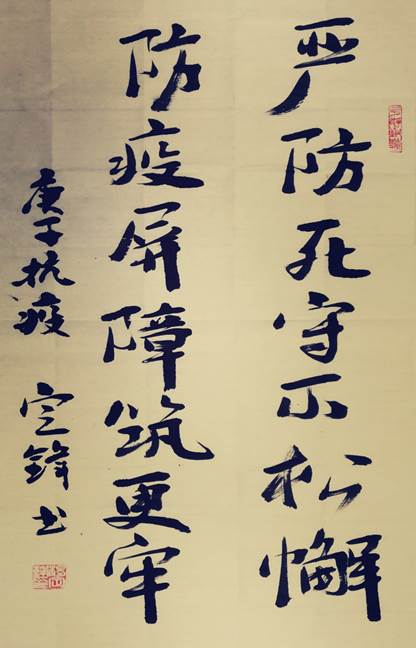 严防死守不松懈
防疫屏障筑更牢
庚子抗疫 定锋书